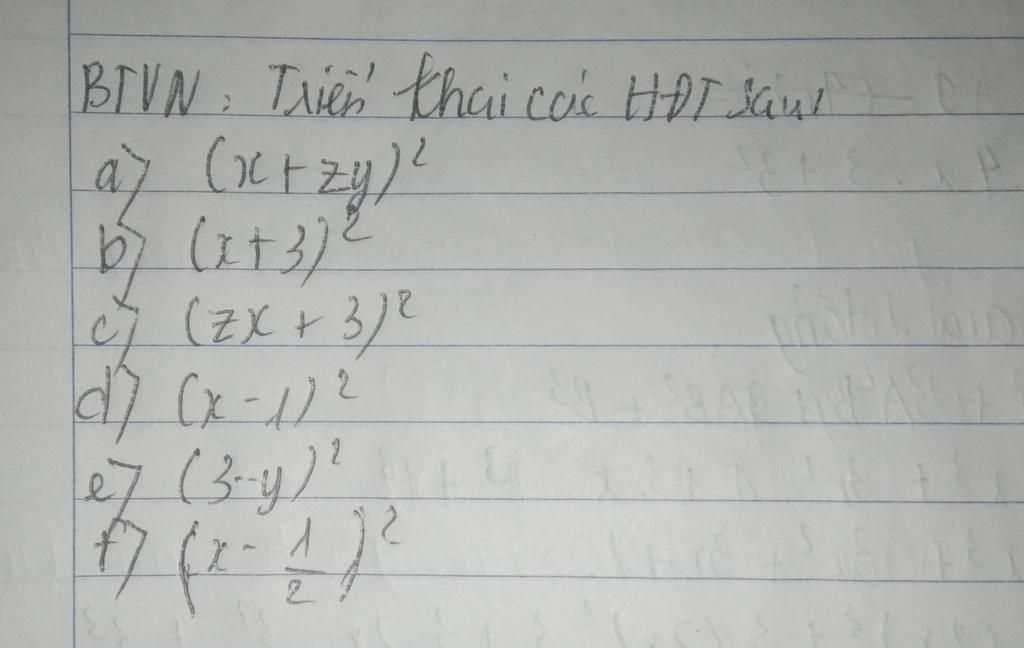 BTVN: Triển thai các HĐT sau
a) (x + 2y)²
b) (x + 3)²
c) (2x + 3)²
d) (x - 1)²
e) (3 - y)²
f) (x - 1/2)²